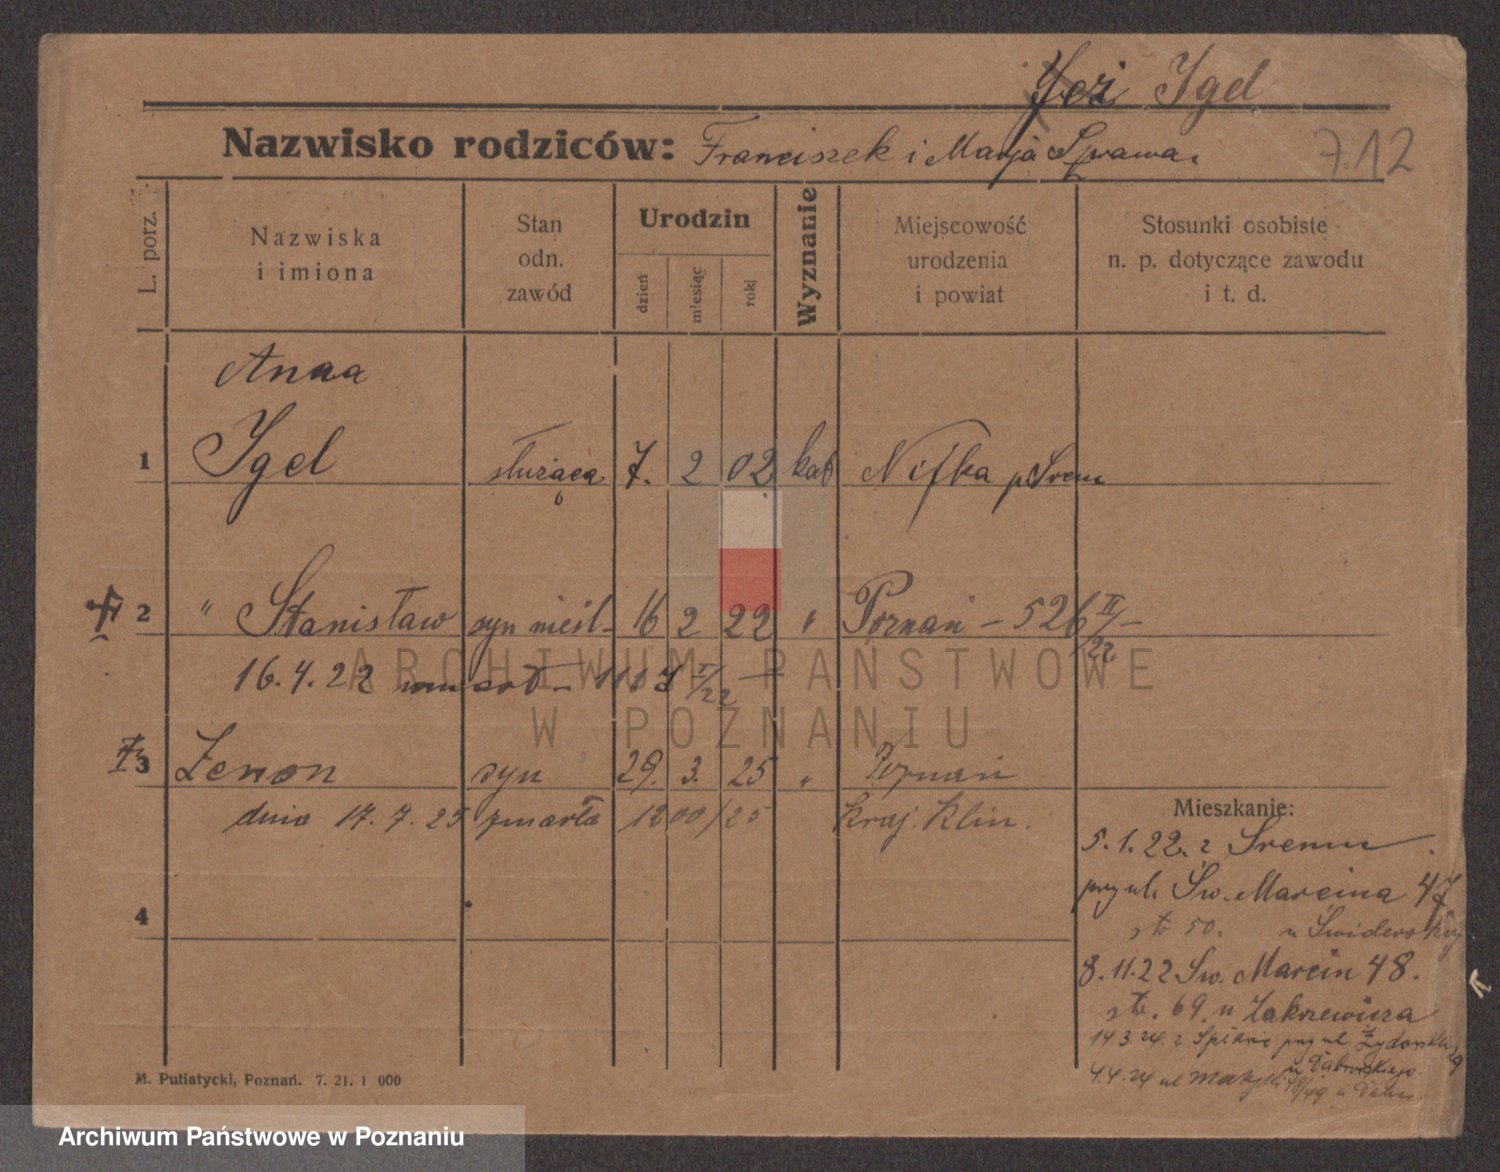 Jeż Igel
Nazwisko rodziców: Franciszek i Marja Sprawa.
712
L. porz.
Nazwiska
i imiona
Stan
odn.
zawód
Urodzin
dzień
miesiąc
rok
Wyznanie
Miejscowość
urodzenia
i powiat
Stosunki osobiste
n. p. dotyczące zawodu
i t. d.
Anna
1 Igel służąca 7. 2 02 kat p Śrem
2 " Stanisław syn nieśl- 16 2 22 " Poznań - 526 II/22 -
16.4.22 zmarł - 22
3 Zenon syn 29. 3. 25 " Poznań
dnia 17. 7. 25 zmarło 1200/25 Kraj. Klin.
4
Mieszkanie:
5.1.22. z Śremu
przy ul. Św. Marcina 47
str 50. u Świderskiej
8.11.22 Św. Marcin 48.
str. 69. u Zakrzewicza
14.3.24. z przy ul Żydowska
u Dąbrowskiego.
4.4.24 ul 48/49 u
M. Putiatycki, Poznań. 7. 21. 1 000
ARCHIWUM PAŃSTWOWE
W POZNANIU
Archiwum Państwowe w Poznaniu